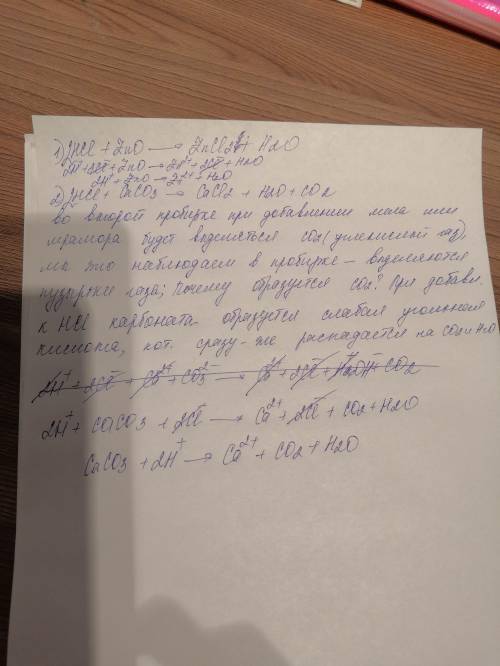 1) 2HCl + ZnO → ZnCl2 + H2O
2H⁺ + 2Cl⁻ + ZnO → Zn²⁺ + 2Cl⁻ + H2O
2H⁺ + ZnO → Zn²⁺ + H2O
2) 2HCl + CaCO3 → CaCl2 + H2O + CO2
Во второй пробирке при добавлении мела или
мрамора будет выделяться CO2 (углекислый газ),
мы это наблюдаем в пробирке – выделяются
пузырьки газа; Почему образуется CO2? При добавл.
к HCl карбоната образуется слабая угольная
кислота, кот. сразу-же распадается на CO2 и H2O
2H⁺ + 2Cl⁻ + Ca²⁺ + CO3²⁻ → Ca²⁺ + 2Cl⁻ + CO2
2H⁺ + CaCO3 + 2Cl⁻ → Ca²⁺ + 2Cl⁻ + CO2 + H2O
CaCO3 + 2H⁺ → Ca²⁺ + CO2 + H2O